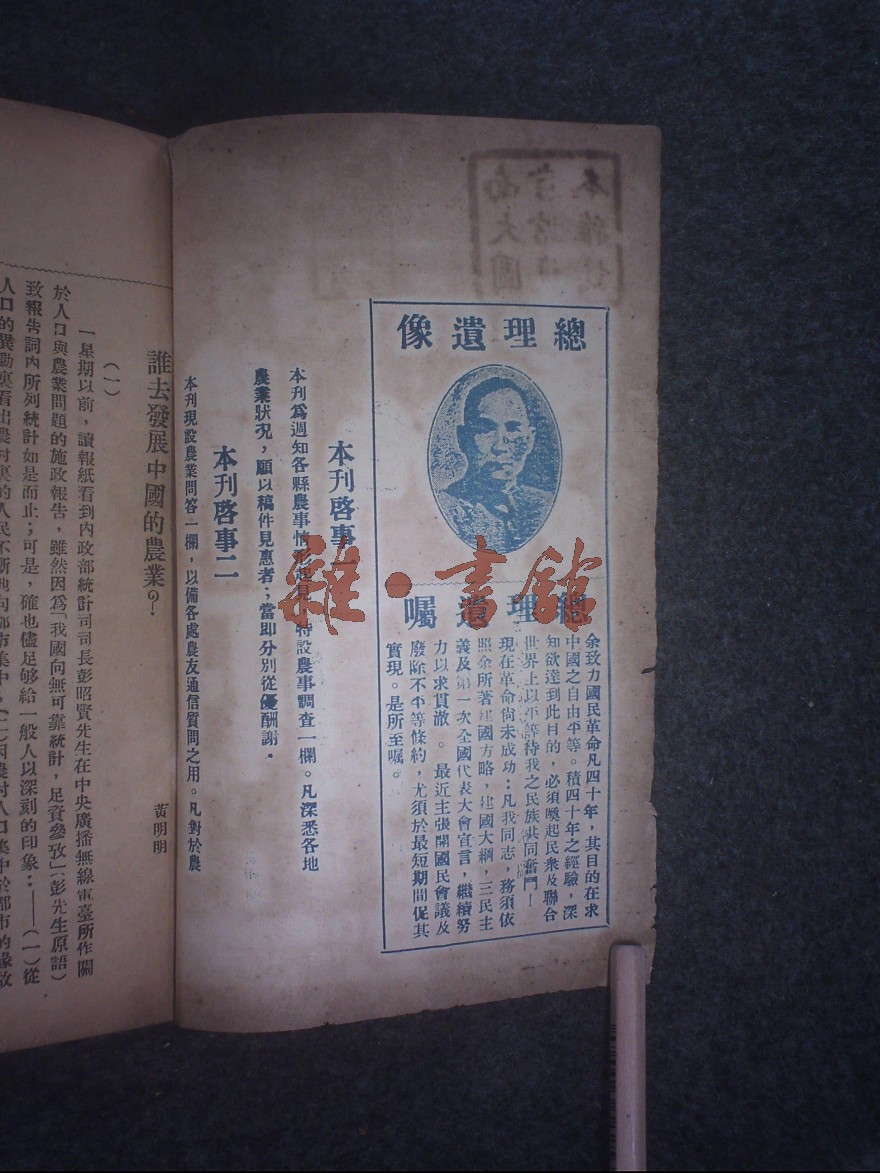 總理遺像
總理遺囑
余致力國民革命凡四十年，其目的在求
中國之自由平等。積四十年之經驗，深
知欲達到此目的，必須喚起民衆及聯合
世界上以平等待我之民族共同奮鬥！
現在革命尚未成功：凡我同志，務須依
照余所著建國方略，建國大綱，三民主
義及第一次全國代表大會宣言，繼續努
力以求貫澈。最近主張開國民會議及
廢除不平等條約，尤須於最短期間促其
實現。是所至囑。
本刊啓事
本刊爲週知各縣農事情形起見，特設農事調查一欄。凡深悉各地
農業狀況，願以稿件見惠者；當即分別從優酬謝。
本刊啓事二
本刊現設農業問答一欄，以備各處農友通信質問之用。凡對於農
雜·書館
誰去發展中國的農業？
黃明明
（一）
一星期以前，讀報紙看到內政部統計司司長彭昭賢先生在中央廣播無線電臺所作關
於人口與農業問題的施政報告，雖然因爲「我國向無可靠統計，足資參攷」（彭先生原語）
致報告詞內所列統計如是而止；可是，確也儘足够給一般人以深刻的印象：——（一）從
人口的異動裏看出農村裏的人民不斷地向都市集中，（二）因農村人口集中於都市的緣故